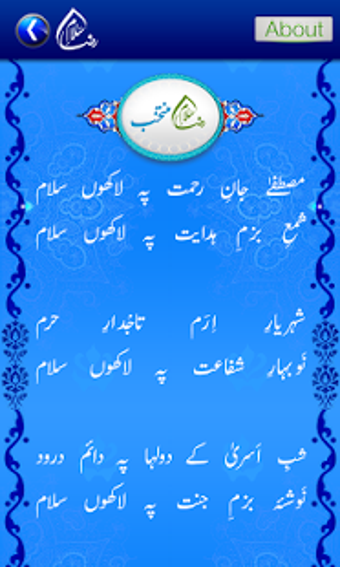 سلام رضا
About
منتخب سلام رضا
مصطفےٰ جانِ رحمت پہ لاکھوں سلام
شمعِ بزمِ ہدایت پہ لاکھوں سلام
شہریارِ اِرَم تاجدارِ حرم
نَوبہارِ شفاعت پہ لاکھوں سلام
شبِ اَسریٰ کے دولہا پہ دائم درود
نَوشۂ بزمِ جنت پہ لاکھوں سلام